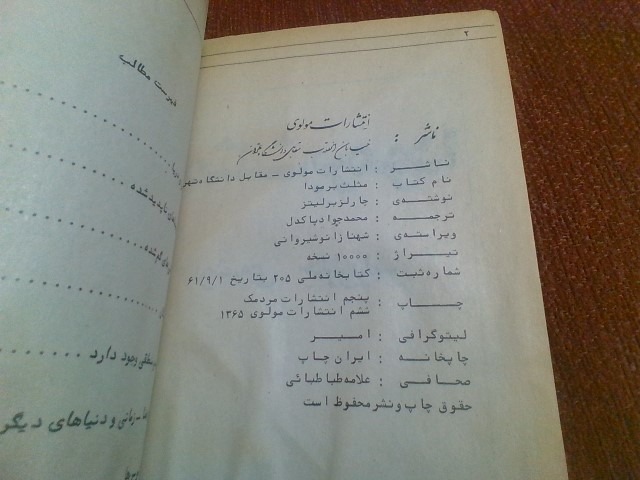 ۲
ناشر : انتشارات مولوی
خیابان انقلاب
ناشر : انتشارات مولوی - مقابل دانشگاه تهران
نام کتاب : مثلث برمودا
نوشته‌ی : چارلز برلیتز
ترجمه : محمدجواد پاکدل
ویراسته‌ی : شهناز انوشیروانی
تیراژ : ۱۰۰۰۰ نسخه
شماره ثبت : کتابخانه ملی ۲۰۵ بتاریخ ۶۱/۹/۱
چاپ : پنجم انتشارات مردمک
ششم انتشارات مولوی ۱۳۶۵
لیتوگرافی : امیر
چاپخانه : ایران چاپ
صحافی : علامه طباطبائی
حقوق چاپ و نشر محفوظ است
فهرست مطالب
ناپدید شده
گم شده
وجود دارد
زمانی و دنیاهای دیگر